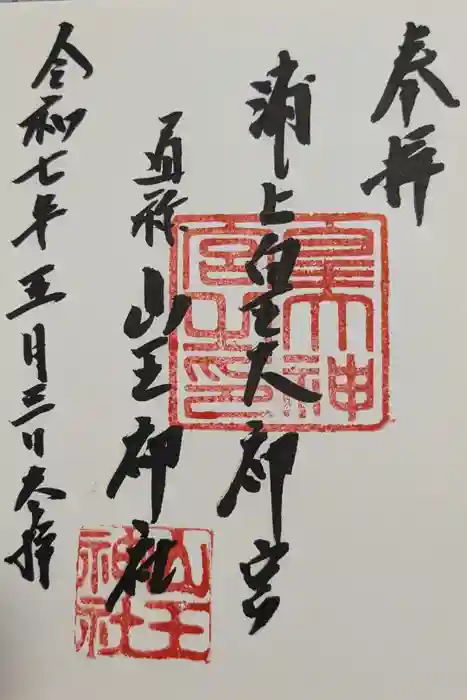 奉拝
浦上皇大神宮
通称 山王神社
令和七年五月三日参拝
皇大神
宮之印
山王
神社